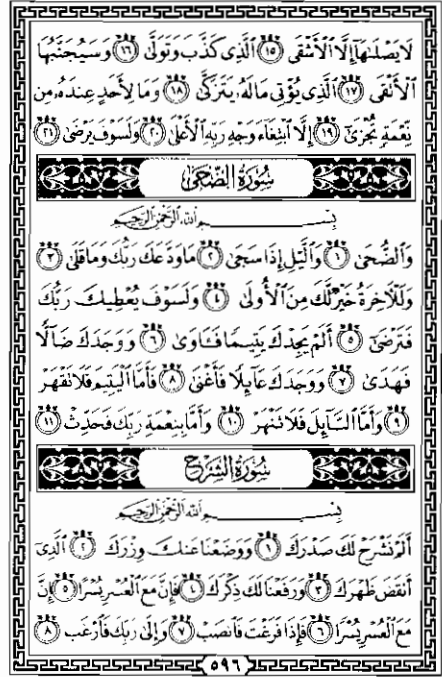 لَا يَصْلَىٰهَآ إِلَّا ٱلْأَشْقَى ١٥ ٱلَّذِى كَذَّبَ وَتَوَلَّىٰ ١٦ وَسَيُجَنَّبُهَا
ٱلْأَتْقَى ١٧ ٱلَّذِى يُؤْتِى مَالَهُۥ يَتَزَكَّىٰ ١٨ وَمَا لِأَحَدٍ عِندَهُۥ مِن
نِّعْمَةٍ تُجْزَىٰٓ ١٩ إِلَّا ٱبْتِغَآءَ وَجْهِ رَبِّهِ ٱلْأَعْلَىٰ ٢٠ وَلَسَوْفَ يَرْضَىٰ ٢١
سُورَةُ الضُّحَىٰ
بِسْمِ ٱللَّهِ ٱلرَّحْمَٰنِ ٱلرَّحِيمِ
وَٱلضُّحَىٰ ١ وَٱلَّيْلِ إِذَا سَجَىٰ ٢ مَا وَدَّعَكَ رَبُّكَ وَمَا قَلَىٰ ٣
وَلَلْأَخِرَةُ خَيْرٌ لَّكَ مِنَ ٱلْأُولَىٰ ٤ وَلَسَوْفَ يُعْطِيكَ رَبُّكَ
فَتَرْضَىٰٓ ٥ أَلَمْ يَجِدْكَ يَتِيمًا فَـَٔاوَىٰ ٦ وَوَجَدَكَ ضَآلًّا
فَهَدَىٰ ٧ وَوَجَدَكَ عَآئِلًا فَأَغْنَىٰ ٨ فَأَمَّا ٱلْيَتِيمَ فَلَا تَقْهَرْ
٩ وَأَمَّا ٱلسَّآئِلَ فَلَا تَنْهَرْ ١٠ وَأَمَّا بِنِعْمَةِ رَبِّكَ فَحَدِّثْ ١١
سُورَةُ الشَّرْحِ
بِسْمِ ٱللَّهِ ٱلرَّحْمَٰنِ ٱلرَّحِيمِ
أَلَمْ نَشْرَحْ لَكَ صَدْرَكَ ١ وَوَضَعْنَا عَنكَ وِزْرَكَ ٢ ٱلَّذِىٓ
أَنقَضَ ظَهْرَكَ ٣ وَرَفَعْنَا لَكَ ذِكْرَكَ ٤ فَإِنَّ مَعَ ٱلْعُسْرِ يُسْرًا ٥ إِنَّ
مَعَ ٱلْعُسْرِ يُسْرًا ٦ فَإِذَا فَرَغْتَ فَٱنصَبْ ٧ وَإِلَىٰ رَبِّكَ فَٱرْغَب ٨
٥٩٦